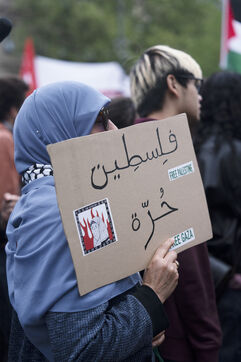 فلسطين
FREE PALESTINE
حُرّة
FREE GAZA